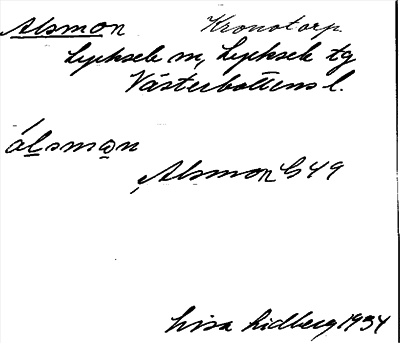 Alsmon Kronotorp.
Lycksele m, Lycksele tg
Västerbottens l.
álsmon
Alsmon G 49
Lisa Lidberg 1934